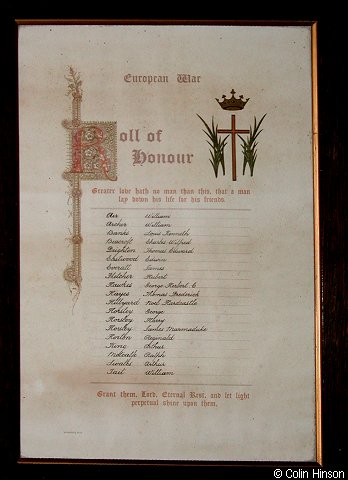 European War
Roll of
Honour
Greater love hath no man than this, that a man
lay down his life for his friends.
Air William
Archer William
Banks Louis Kenneth
Beecroft Charles Wilfred
Deighton Thomas Edward
Eastwood Edwin
Everall James
Fletcher Hubert
Hawkes George Herbert C
Hayes Thomas Frederick
Hillyard Noel Hardcastle
Horsley George
Horsley Harry
Horsley James Marmaduke
Horton Reginald
King Arthur
Metcalfe Ralph
Swales Arthur
Tail William
Grant them, Lord, Eternal Rest, and let light
perpetual shine upon them.
© Colin Hinson